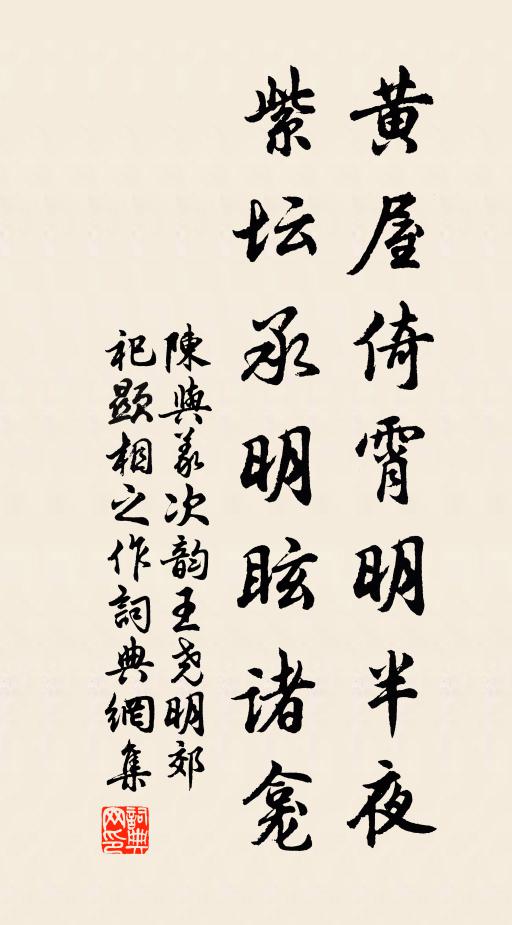 黄屋倚霄明半夜
紫坛承明眩诸龛
陳與義次韵王尧明郊
祀顯相之作詞典網集
詞典
网印